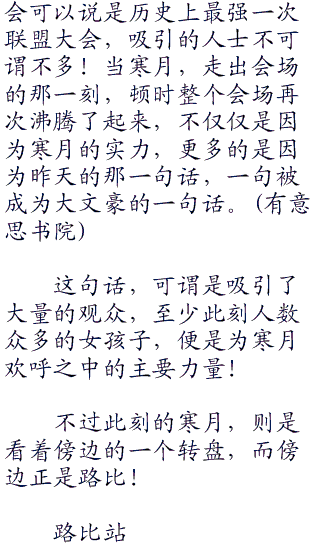 会可以说是历史上最强一次
联盟大会，吸引的人士不可
谓不多！当寒月，走出会场
的那一刻，顿时整个会场再
次沸腾了起来，不仅仅是因
为寒月的实力，更多的是因
为昨天的那一句话，一句被
成为大文豪的一句话。(有意
思书院)
这句话，可谓是吸引了
大量的观众，至少此刻人数
众多的女孩子，便是为寒月
欢呼之中的主要力量！
不过此刻的寒月，则是
看着傍边的一个转盘，而傍
边正是路比！
路比站